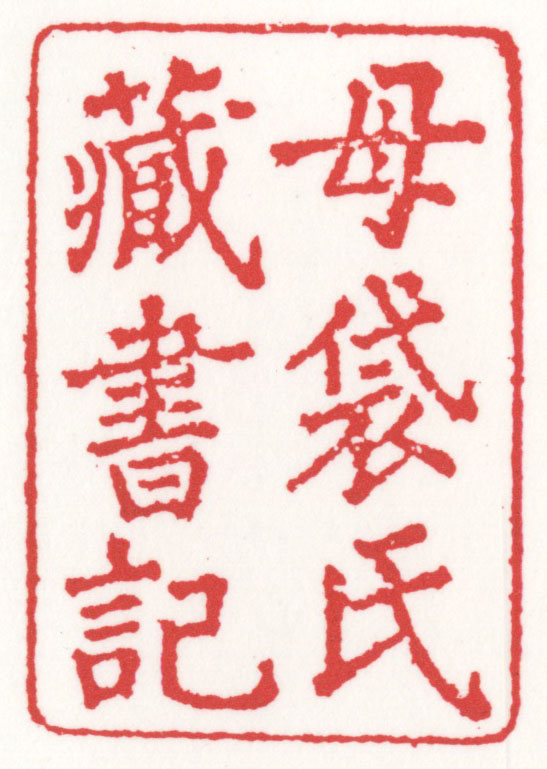 母袋氏
藏書記